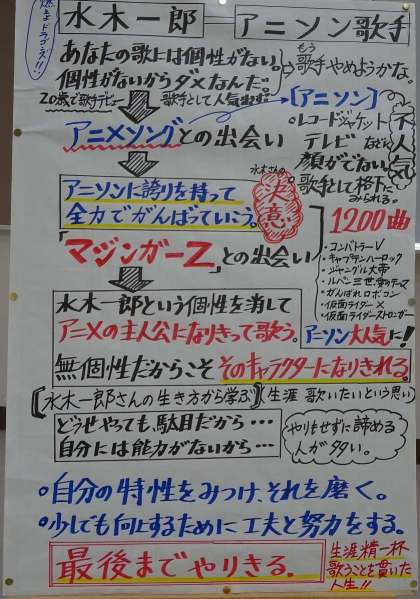 燃えよドラゴンズ!!
水木一郎 アニソン歌手
あなたの歌には個性がない。
個性がないからダメなんだ。
もう
歌手やめようかな。
20歳で歌手デビュー
歌手として人気出ず
[アニソン]
アニメソングとの出会い
レコードジャケット
テレビなどに
顔がでない。
歌手として格下に
みられる。
不人気
水木さんの
決意
アニソンに誇りを持って
全力でがんばっていこう。
「マジンガーZ」との出会い
1200曲
・コンバトラーV
・キャプテンハーロック
・ジャングル大帝
・ルパン三世、愛のテーマ
・がんばれロボコン
・仮面ライダーX
・仮面ライダーストロンガー
アニソン大人気に!!
水木一郎という個性を消して
アニメの主人公になりきって歌う。
無個性だからこそそのキャラクターになりきれる。
[水木一郎さんの生き方から学ぶ]
(生涯 歌いたいという思い)
どうせやっても、駄目だから・・・
自分には能力がないから・・・
やりもせずに諦める
人が多い。
○自分の特性をみつけ、それを磨く。
○少しでも向上するために工夫と努力をする。
最後までやりきる。
生涯精一杯
歌うことを貫いた
人生!!